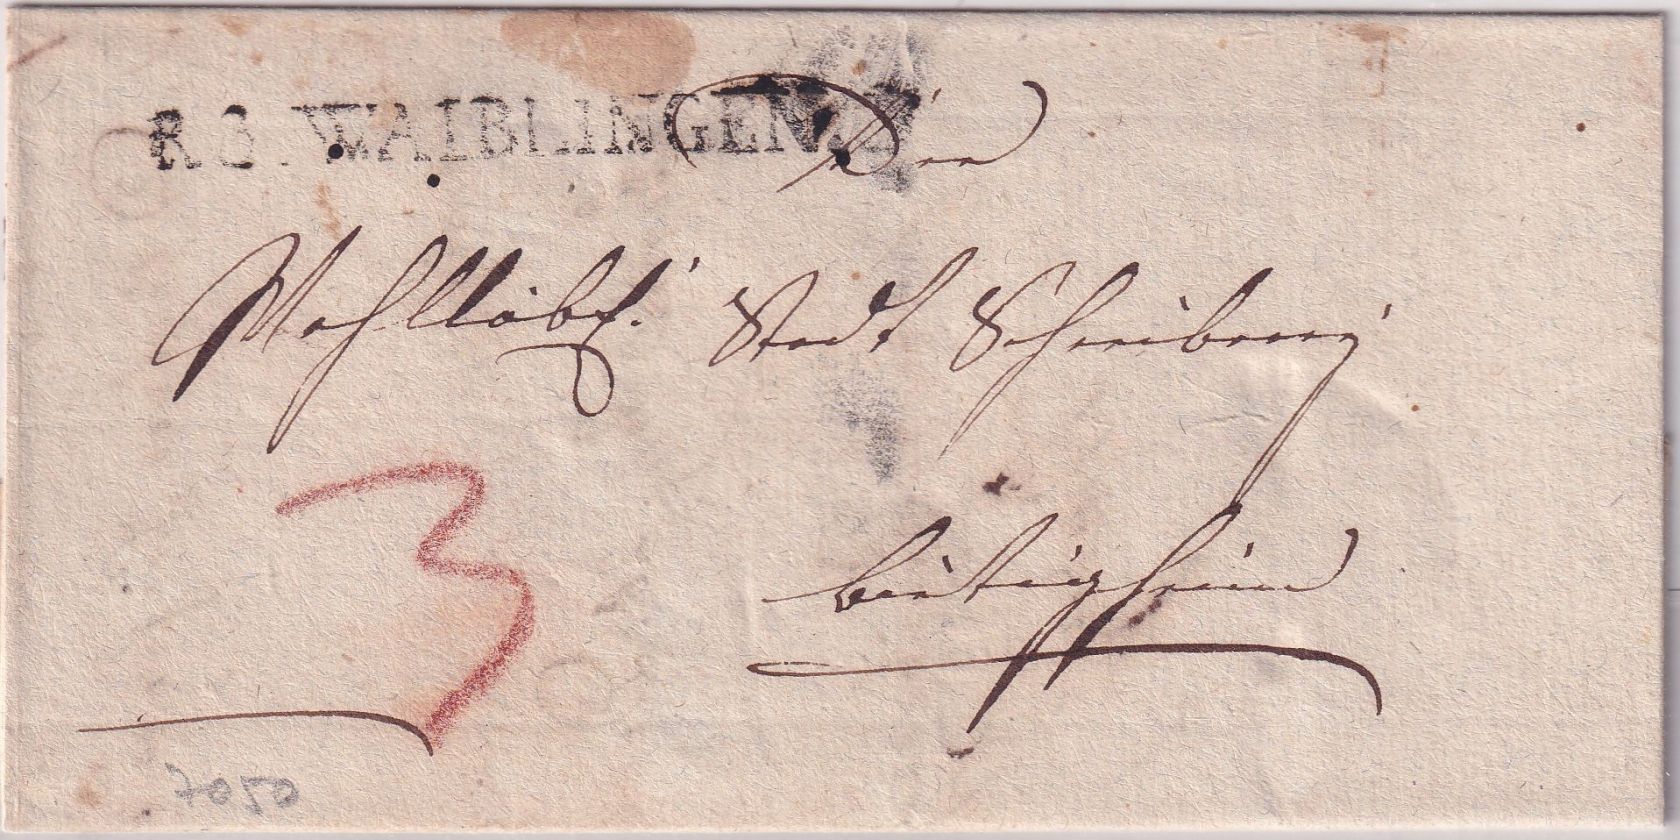 R.3. WAIBLINGEN.
Die
Wohllöbl. Stadt Schreiberey
3
bietigheim
7050